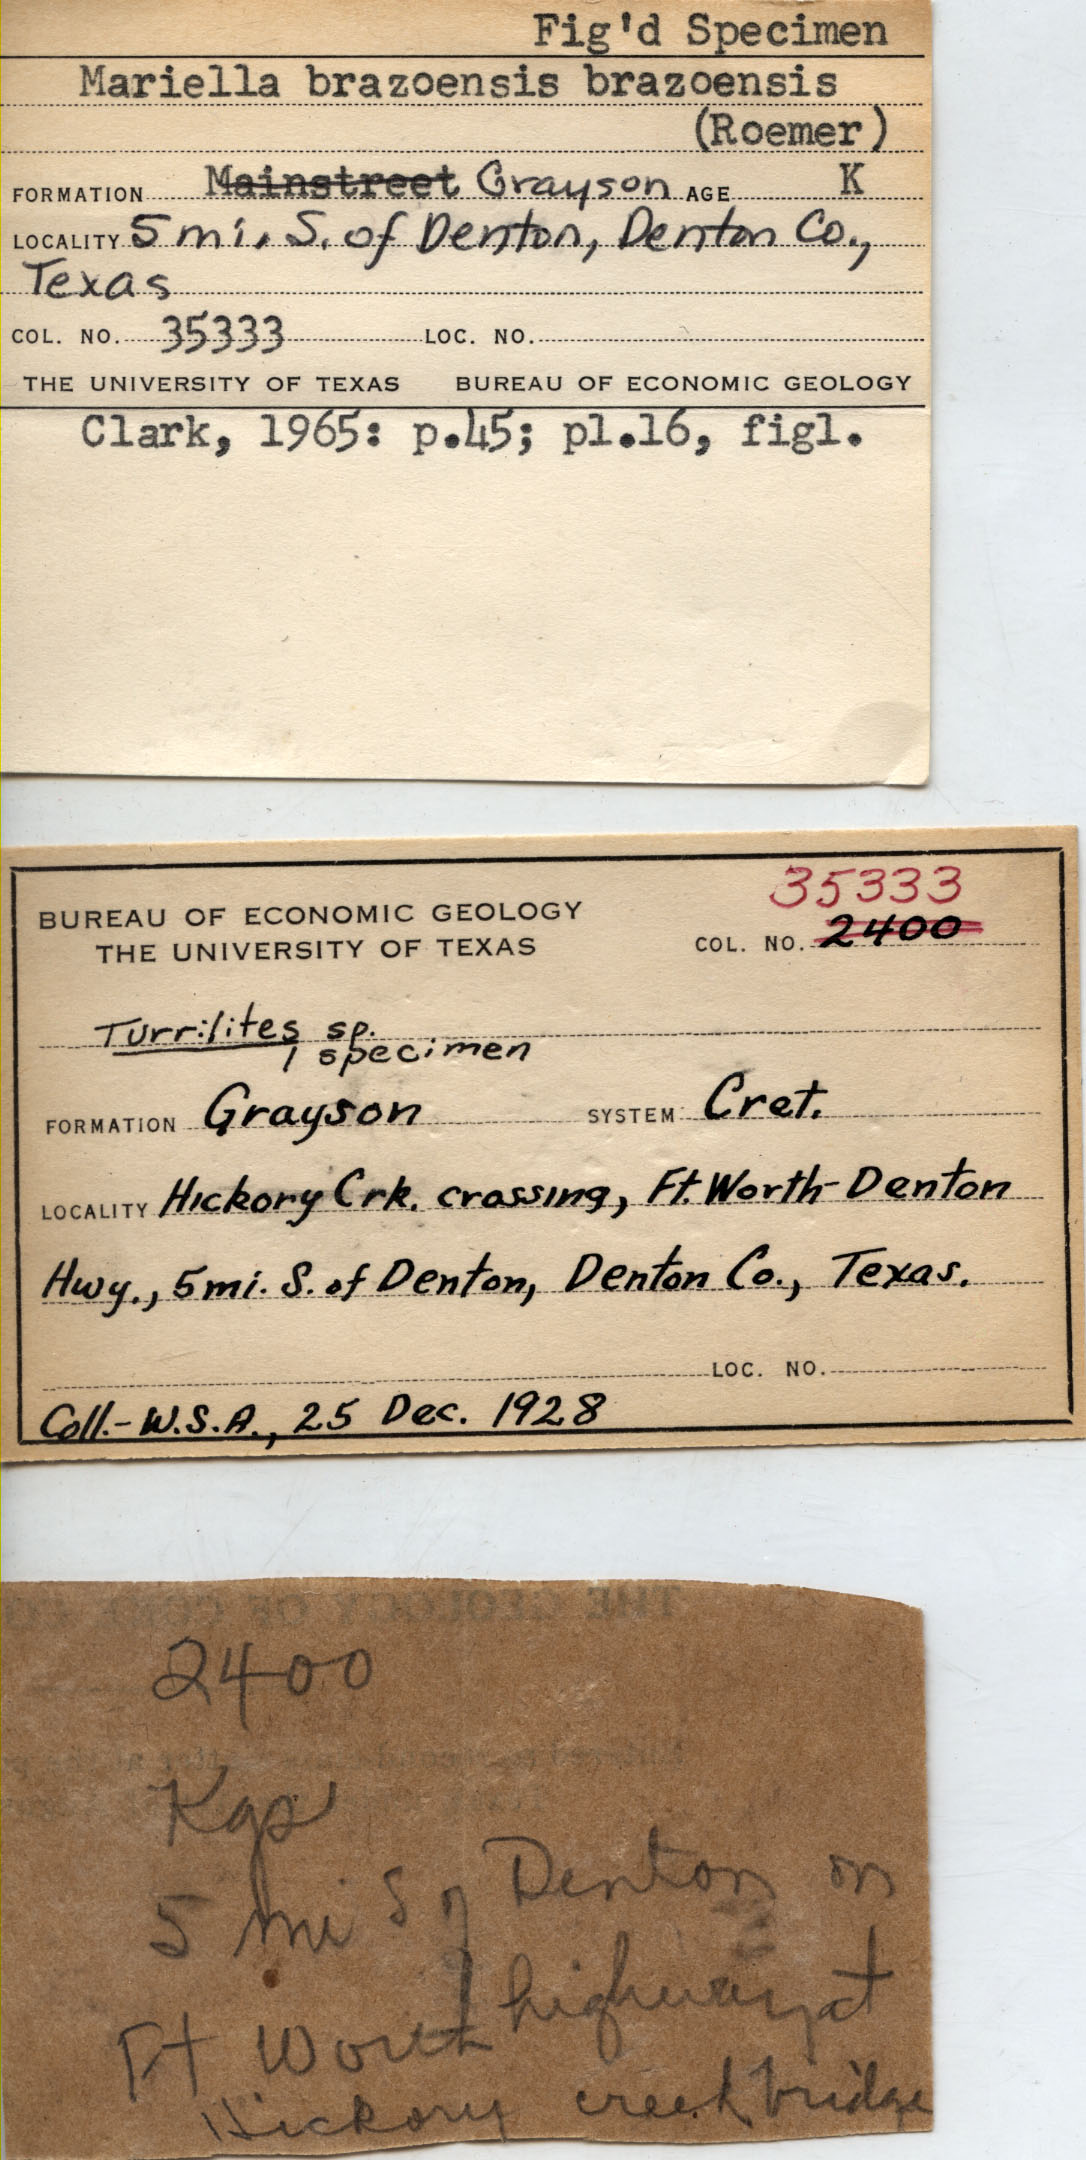 Fig'd Specimen
Mariella brazoensis brazoensis
(Roemer)
FORMATION Mainstreet Grayson AGE K
LOCALITY 5 mi. S. of Denton, Denton Co.,
Texas
COL. NO. 35333 LOC. NO.
THE UNIVERSITY OF TEXAS BUREAU OF ECONOMIC GEOLOGY
Clark, 1965: p.45; pl.16, fig1.
35333
BUREAU OF ECONOMIC GEOLOGY
THE UNIVERSITY OF TEXAS COL. NO. 2400
Turrilites sp.
1 specimen
FORMATION Grayson SYSTEM Cret.
LOCALITY Hickory Crk. crossing, Ft. Worth-Denton
Hwy., 5mi. S. of Denton, Denton Co., Texas.
LOC. NO.
Coll.- W.S.A., 25 Dec. 1928
THE GEOLOGY OF
2400
Kgs
5 mi S of Denton on
Ft Worth highway at
Hickory creek bridge